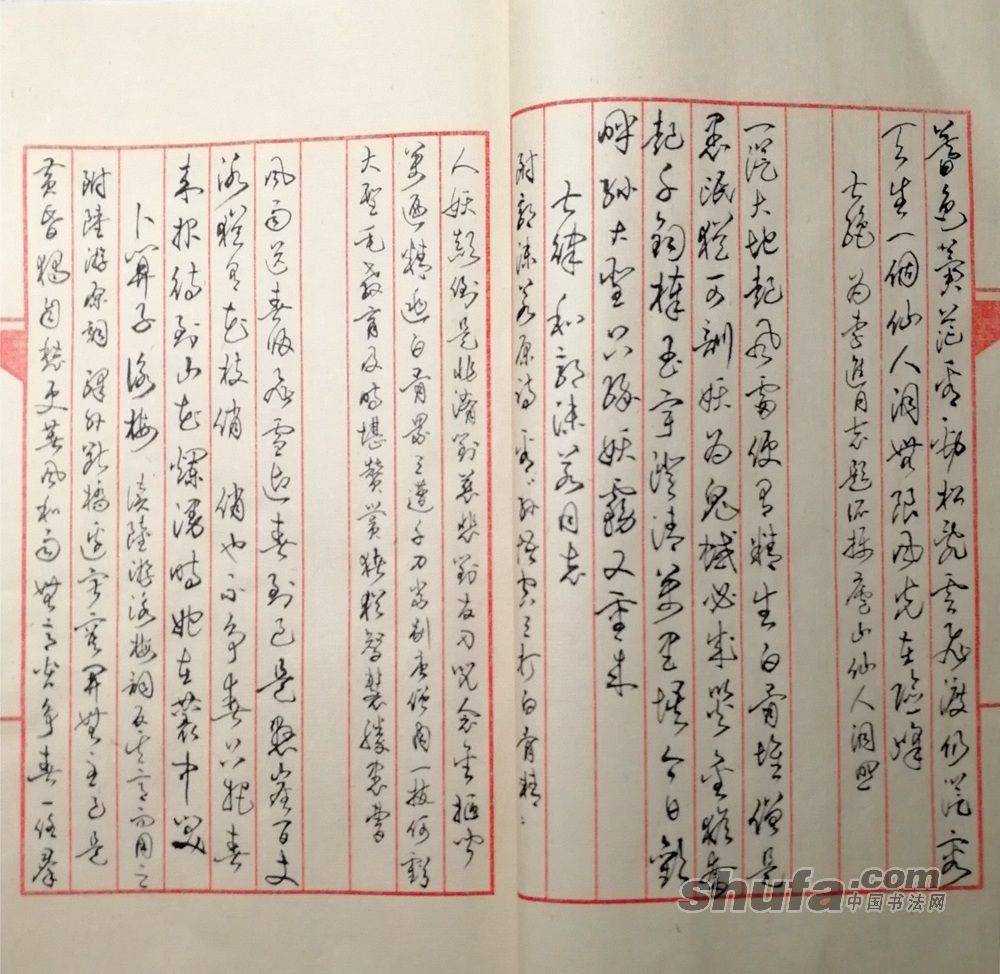 暮色蒼茫看勁松乱雲飛渡仍從容
天生一個仙人洞無限风光在險峰
七绝 为李進同志題所攝廬山仙人洞照
一從大地起风雷便有精生白骨堆僧是
愚氓猶可訓妖为鬼蜮必成災金猴奮
起千鈞棒玉宇澄清萬里埃今日歡
呼孙大聖只缘妖霧又重来
七律 和郭沫若同志
附郭沫若原诗 看《孙悟空三打白骨精》
人妖颠倒是非淆對敵慈悲對友刁咒念金箍闻
萬遍精逃白骨累三遭千刀当剐唐僧肉一拔何虧
大聖毛教育及時堪赞赏猪猶智慧勝愚曹
风雨送春歸飛雪迎春到已是懸崖百丈
冰猶有花枝俏 俏也不争春只把春
来报待到山花爛漫時她在叢中笑
卜算子 詠梅 读陸游詠梅詞反其意而用之
附陸游原詞 驛外断橋边寂寞開無主已是
黄昏獨自愁更著风和雨無意苦争春一任群
shufa.com
中国书法网